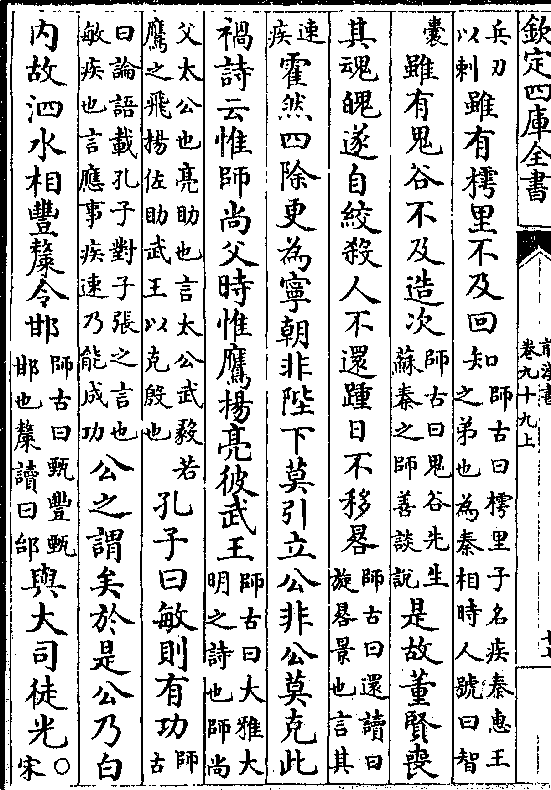 欽定四庫全書
卷九十九上
兵刃
以刺
雖有樗里不及回知
師古曰樗里子名疾秦惠王
之弟也為秦相時人號曰智
囊
雖有鬼谷不及造次
師古曰鬼谷先生
蘇秦之師善談說
是故董賢喪
其魂魄遂自絞殺人不還踵日不移晷
師古曰還讀曰
旋晷景也言其
速
疾
霍然四除更為寧朝非陛下莫引立公非公莫克此
禍詩云惟師尚父時惟鷹揚亮彼武王
師古曰大雅大
明之詩也師尚
父太公也亮助也言太公武毅若
鷹之飛揚佐助武王以克殷也
孔子曰敏則有功
師
古
曰論語載孔子對子張之言也
敏疾也言應事疾速乃能成功
公之謂矣於是公乃白
内故泗水相豐斄令邯
師古曰甄豐甄
邯也斄讀曰邰
與大司徒光
○宋